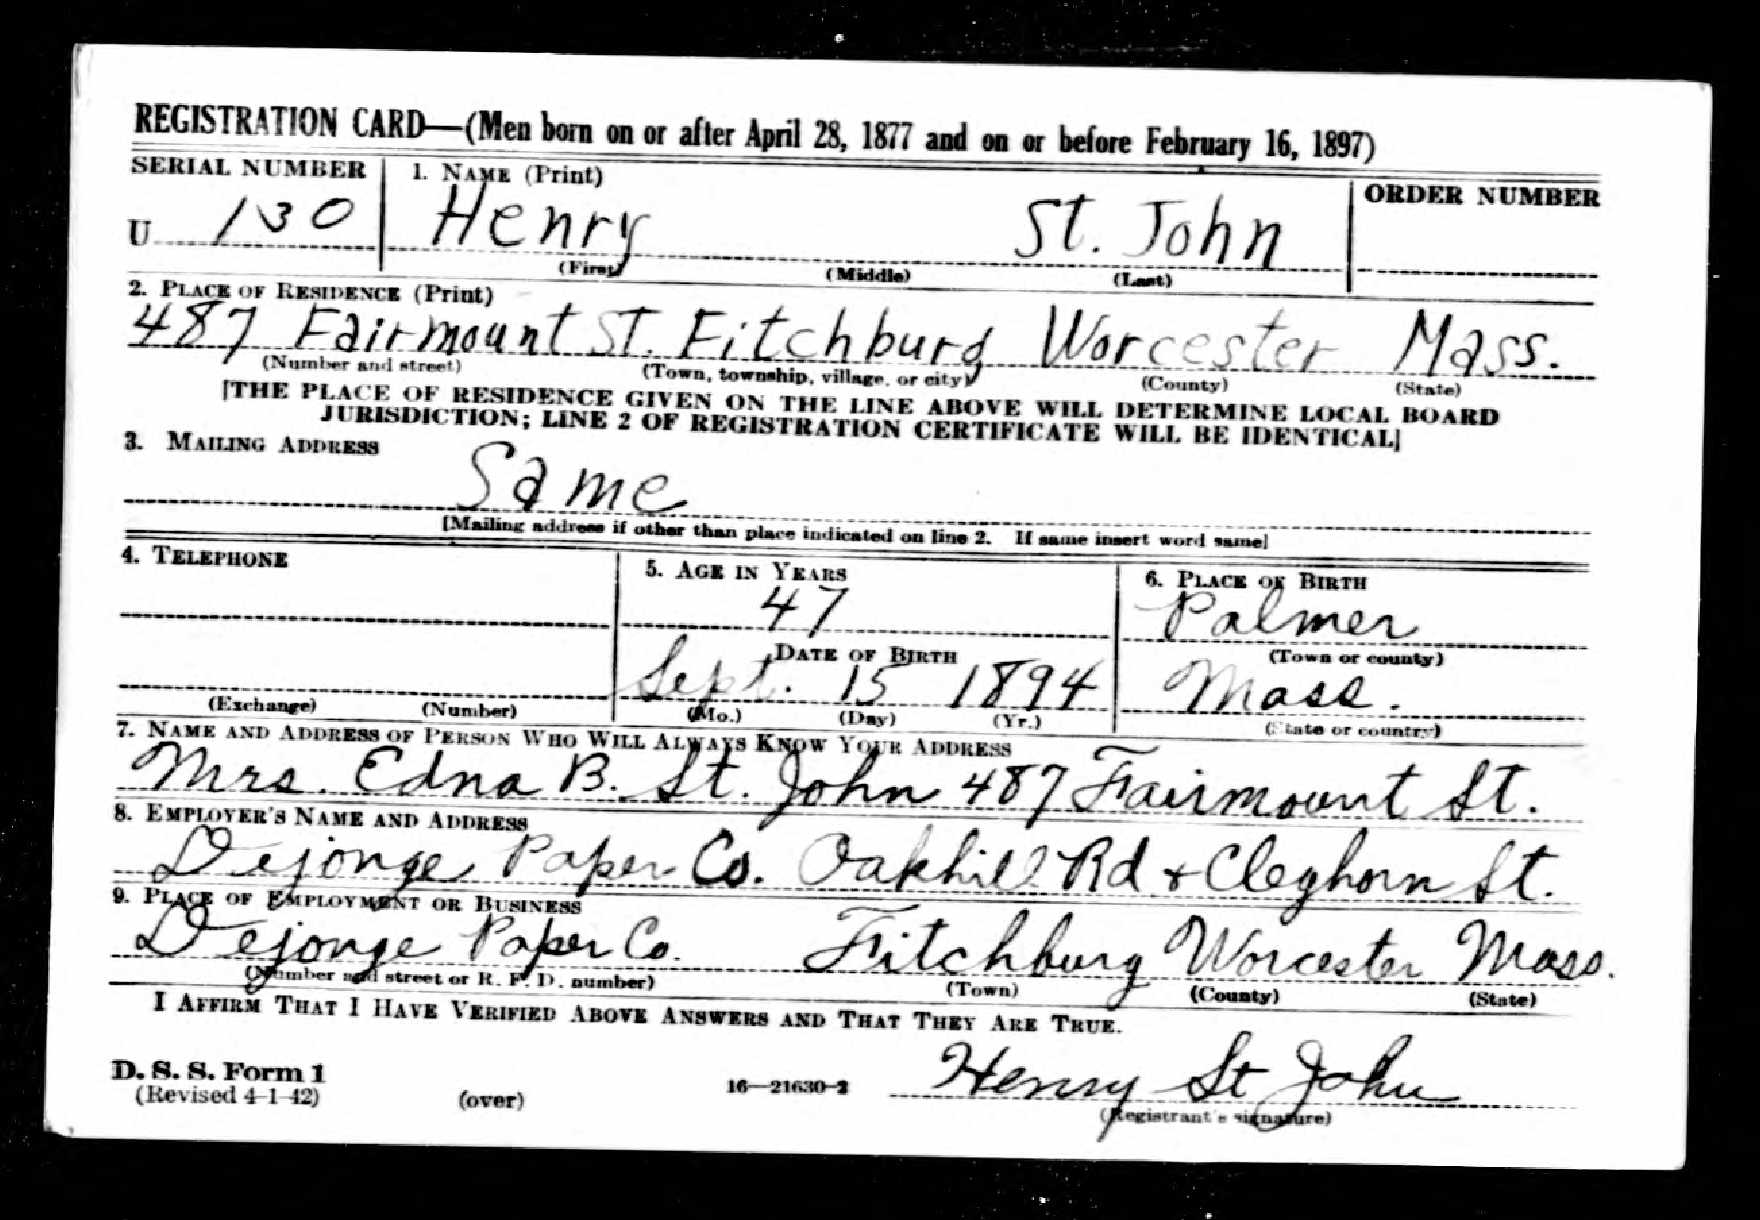 REGISTRATION CARD—(Men born on or after April 28, 1877 and on or before February 16, 1897)
SERIAL NUMBER 1. NAME (Print) ORDER NUMBER
U 130 Henry St. John
(First) (Middle) (Last)
2. PLACE OF RESIDENCE (Print)
487 Fairmount St. Fitchburg Worcester Mass.
(Number and street) (Town, township, village, or city) (County) (State)
[THE PLACE OF RESIDENCE GIVEN ON THE LINE ABOVE WILL DETERMINE LOCAL BOARD
JURISDICTION; LINE 2 OF REGISTRATION CERTIFICATE WILL BE IDENTICAL]
3. MAILING ADDRESS
Same
[Mailing address if other than place indicated on line 2. If same insert word same]
4. TELEPHONE 5. AGE IN YEARS 6. PLACE OF BIRTH
47 Palmer
DATE OF BIRTH (Town or county)
Sept. 15 1894 Mass.
(Exchange) (Number) (Mo.) (Day) (Yr.) (State or country)
7. NAME AND ADDRESS OF PERSON WHO WILL ALWAYS KNOW YOUR ADDRESS
Mrs. Edna B. St. John 487 Fairmount St.
8. EMPLOYER'S NAME AND ADDRESS
Dejonge Paper Co. Oakhill Rd + Cleghorn St.
9. PLACE OF EMPLOYMENT OR BUSINESS
Dejonge Paper Co. Fitchburg Worcester Mass.
(Number and street or R. F. D. number) (Town) (County) (State)
I AFFIRM THAT I HAVE VERIFIED ABOVE ANSWERS AND THAT THEY ARE TRUE.
D. S. S. Form 1 Henry St John
(Revised 4-1-42) (over) 16—21630-2 (Registrant's signature)